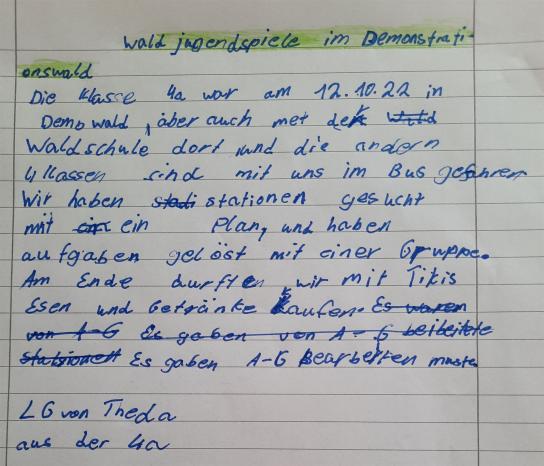 Wald jugendspiele im Demonstrati-
onswald
Die Klasse 4a war am 12.10.22 in
Demowald, aber auch met der
Waldschule dort und die andern
4 Klassen sind mit uns im Bus gefahren
Wir haben stationen gesucht
mit ein Plan, und haben
aufgaben gelöst mit einer Gruppe.
Am Ende durften wir mit Tikis
Esen und Getränke Kaufen. Es waren
von A-G Es gaben von A-G
Es gaben A-G Bearbeiten muste
LG von Theda
aus der 4a